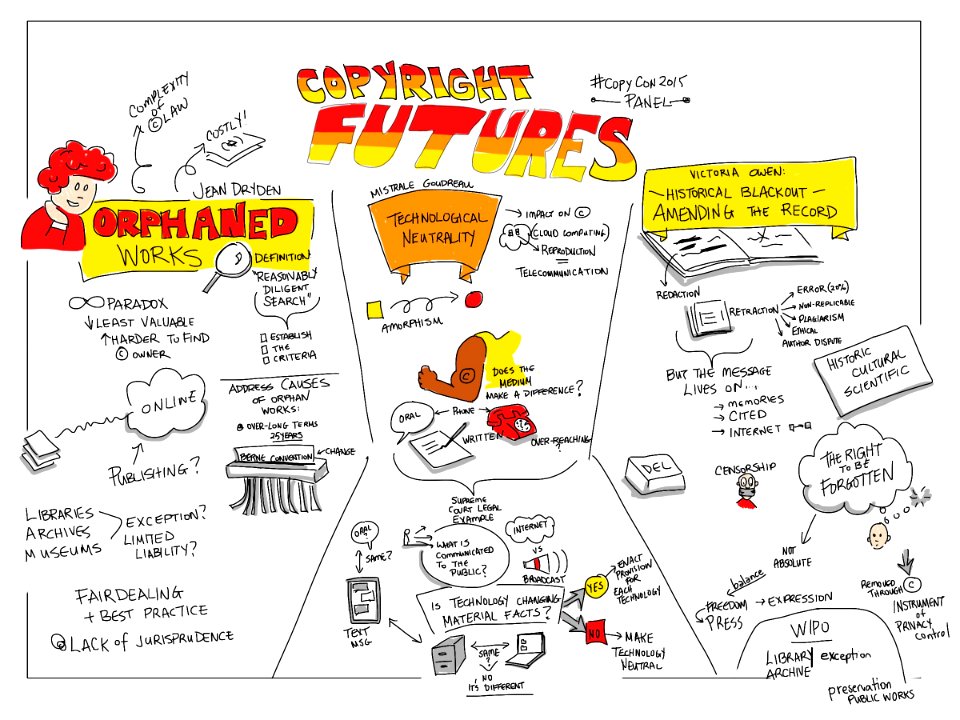 COPYRIGHT
FUTURES
#COPYCON2015
PANEL
COMPLEXITY
of
© LAW
COSTLY!
($)
JEAN DRYDEN
ORPHANED
WORKS
DEFINITION
"REASONABLY
DILIGENT
SEARCH"
ESTABLISH
THE
CRITERIA
PARADOX
↓ LEAST VALUABLE
↑ HARDER TO FIND
© OWNER
ONLINE
PUBLISHING?
ADDRESS CAUSES
OF ORPHAN
WORKS:
OVER-LONG TERMS
25 YEARS
BERNE CONVENTION
← CHANGE
LIBRARIES
ARCHIVES
MUSEUMS
EXCEPTION?
LIMITED
LIABILITY?
FAIRDEALING
+ BEST PRACTICE
LACK of JURISPRUDENCE
MISTRALE GOUDREAU
TECHNOLOGICAL
NEUTRALITY
→ IMPACT ON ©
(CLOUD COMPUTING)
→ REPRODUCTION
=
TELECOMMUNICATION
AMORPHISM
©
DOES THE
MEDIUM
MAKE A DIFFERENCE?
ORAL
← PHONE →
WRITTEN
OVER-REACHING?
SUPREME
COURT LEGAL
EXAMPLE
WHAT IS
COMMUNICATED
TO THE
PUBLIC?
INTERNET
VS
BROADCAST
ORAL
SAME?
TEXT
MSG
IS TECHNOLOGY CHANGING
MATERIAL FACTS?
YES
ENACT
PROVISION
FOR
EACH
TECHNOLOGY
NO
→ MAKE
TECHNOLOGY
NEUTRAL
←SAME→
?
NO
IT'S DIFFERENT
VICTORIA OWEN:
—HISTORICAL BLACKOUT—
AMENDING THE RECORD
REDACTION
RETRACTION
ERROR (20%)
NON-REPLICABLE
PLAGIARISM
ETHICAL
AUTHOR DISPUTE
BUT THE MESSAGE
LIVES ON...
→ MEMORIES
→ CITED
→ INTERNET
HISTORIC
CULTURAL
SCIENTIFIC
DEL
CENSORSHIP
THE RIGHT
TO BE
FORGOTTEN
NOT
ABSOLUTE
balance
FREEDOM → EXPRESSION
PRESS
REMOVED
THROUGH ©
INSTRUMENT
of
PRIVACY
CONTROL
WIPO
LIBRARY
ARCHIVE
exception
preservation
PUBLIC WORKS